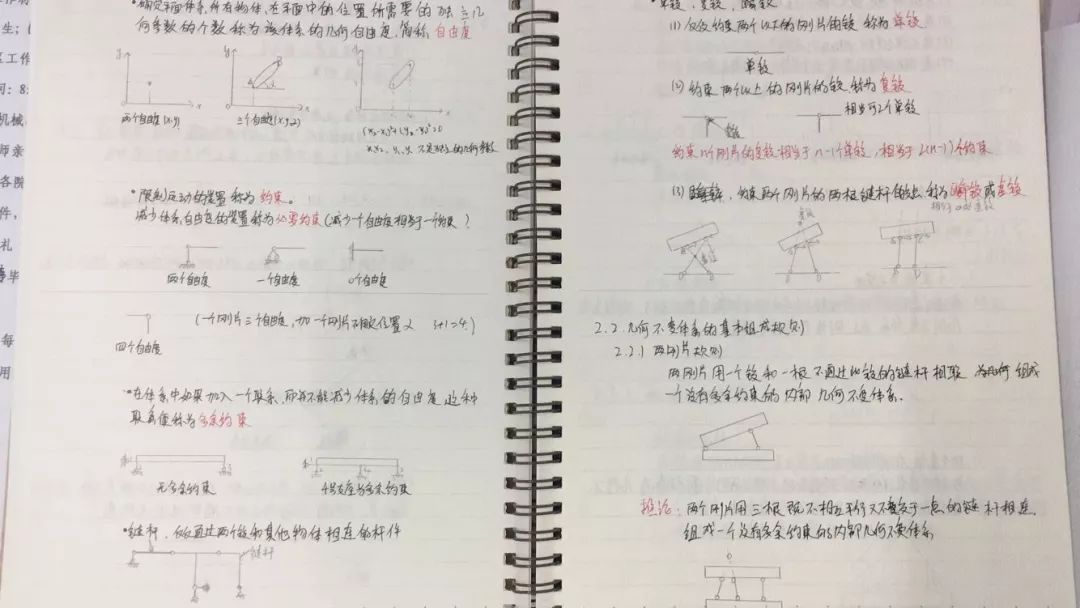 生；(
工作
间：8:
机械
师亲
各院
件，
礼
毕
每
用
·确定平面体系所有物体在平面中的位置所需要的独立几
何参数的个数称为该体系的几何自由度，简称自由度
y
y
A
B
x
x
x
两个自由度(x,y)
三个自由度
不是独立的几何参数
·限制运动的装置称为约束。
减少体系自由度的装置称为必要约束(减少一个自由度相当于一个约束)
两个自由度
一个自由度
0个自由度
(一个刚片三个自由度，加一个刚片不确定位置又 3+1=4.)
四个自由度
·在体系中如果加入一个联系，而并不能减少体系的自由度 这种
联系便称为多余约束
无多余约束
支座为多余约束
·链杆，仅仅通过两个铰和其他物体相连的杆件
链杆
(1) 仅仅约束两个以下的刚片的铰 称为单铰
单铰
(2) 约束两个以上的刚片的铰 称为复铰
相当于2个单铰
约束n个刚片的复铰相当于n-1个单铰，相当于2(n-1)个约束
(3) 瞬铰，约束两个刚片的两根链杆的交点 称为瞬铰或虚铰
2.2 几何不变体系的基本组成规则
2.2.1 两刚片规则
两刚片用一个铰和一根不通过此铰的链杆相联 为几何 组成
一个没有多余约束的内部几何不变体系.
推论：两个刚片用三根既不相互平行又不交于一点的链杆相连
组成一个没有多余约束的内部几何不变体系